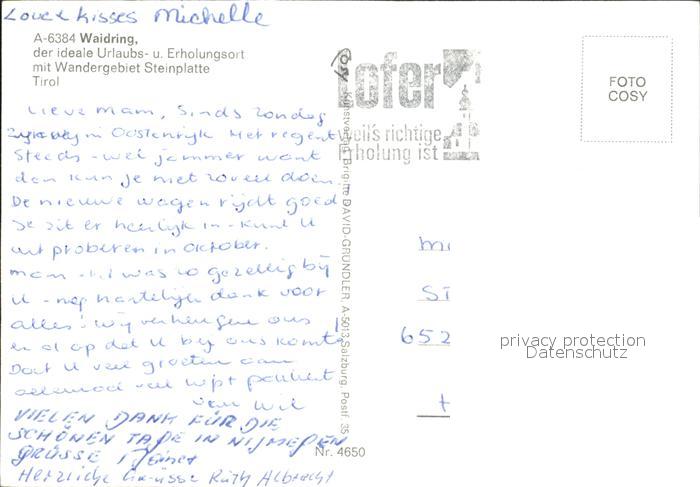 Love & kisses Michelle
A-6384 Waidring,
der ideale Urlaubs- u. Erholungsort
mit Wandergebiet Steinplatte
Tirol
Lieve mam, Sinds zondag
zijn wij in Oostenrijk Het regent
steeds - wel jammer want
dan kun je niet zoveel doen.
De nieuwe wagen rijdt goed
Je zit er heerlijk in - kunt U
uit proberen in october.
mam - het was zo gezellig bij
U - nog hartelijk dank voor
alles! Wij verheugen ons
er al op dat U bij ons komt!
Doet U veel groeten aan
allemaal veel
van Wil
VIELEN DANK FÜR DIE
SCHÖNEN TAGE IN NIJMEGEN
GRÜSSE
Herzliche Grüsse Ruth Albrecht
Lofer
weil's richtige
Erholung ist
Kunstverlag Brigitte DAVID-GRÜNDLER, A-5013 Salzburg, Postf. 35
Nr. 4650
FOTO
COSY
652
privacy protection
Datenschutz